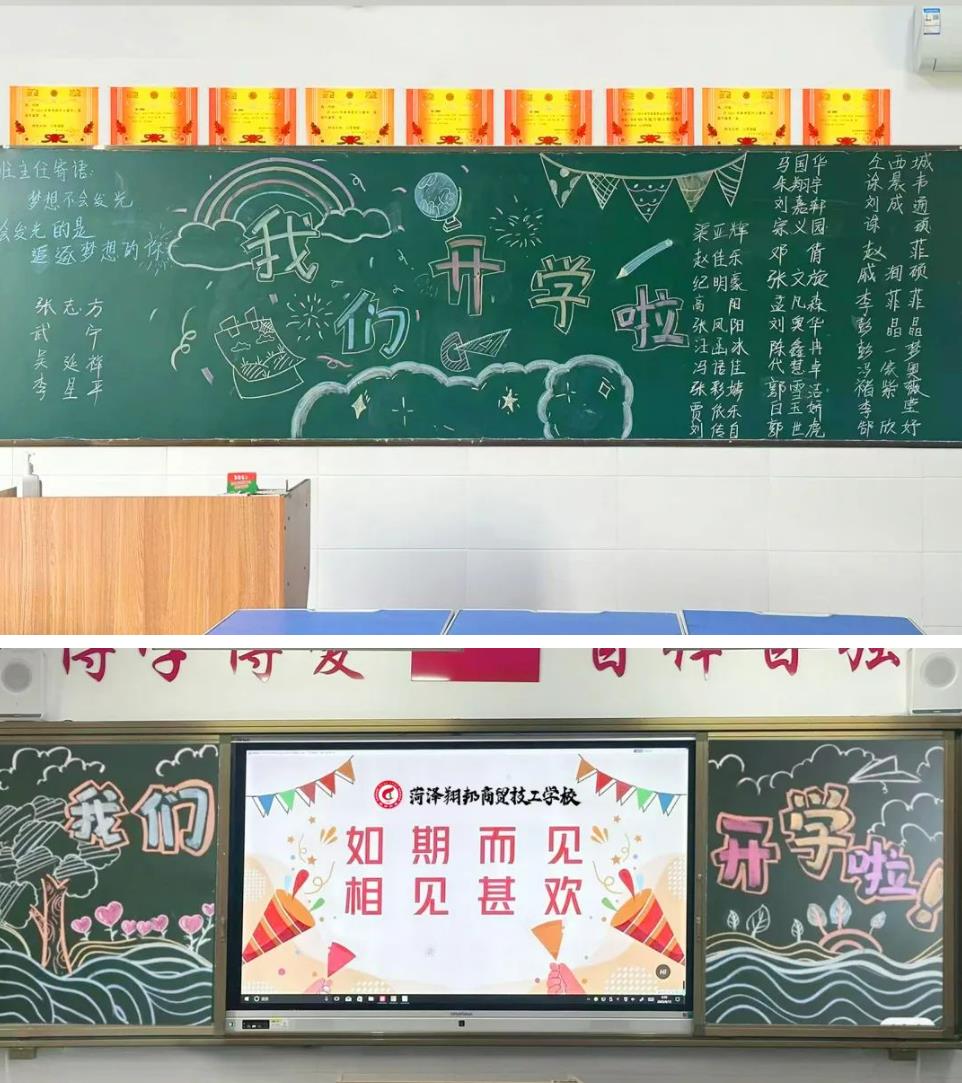 班主任寄语:
梦想不会发光
会发光的是
追逐梦想的你
张志方
武宁
吴延桦
李星平
我们开学啦
渠亚辉
赵佳乐
纪明豪
高阳
张凤阳
汪函冰
冯语佳
张彩婧
贾依乐
刘传自
马国华
朱翔宇
刘嘉轩
宗义园
邓倩
张文旋
孟凡森
刘奥华
陈鑫冉
代慧卓
郭雪洁
吕玉娇
郭世虎
仝西城
徐晨韦
刘成通
徐硕
赵菲
戚湘硕
李菲菲
彭晶晶
彭一梦
冯依
褚紫璇
李莹
郜欣妤
博学博爱
自律自强
我们
菏泽翔邦商贸技工学校
如期而见
相见甚欢
开学啦!